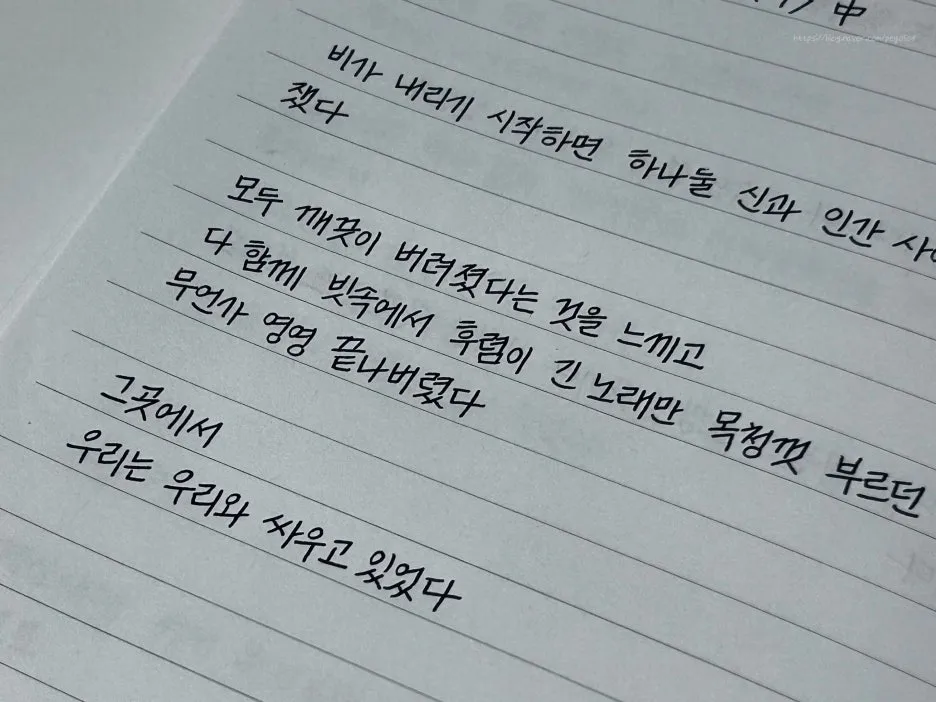 中
비가 내리기 시작하면 하나둘 신과 인간
쟀다
모두 깨끗이 버려졌다는 것을 느끼고
다 함께 빗속에서 후렴이 긴 노래만 목청껏 부르던
무언가 영영 끝나버렸다
그곳에서
우리는 우리와 싸우고 있었다